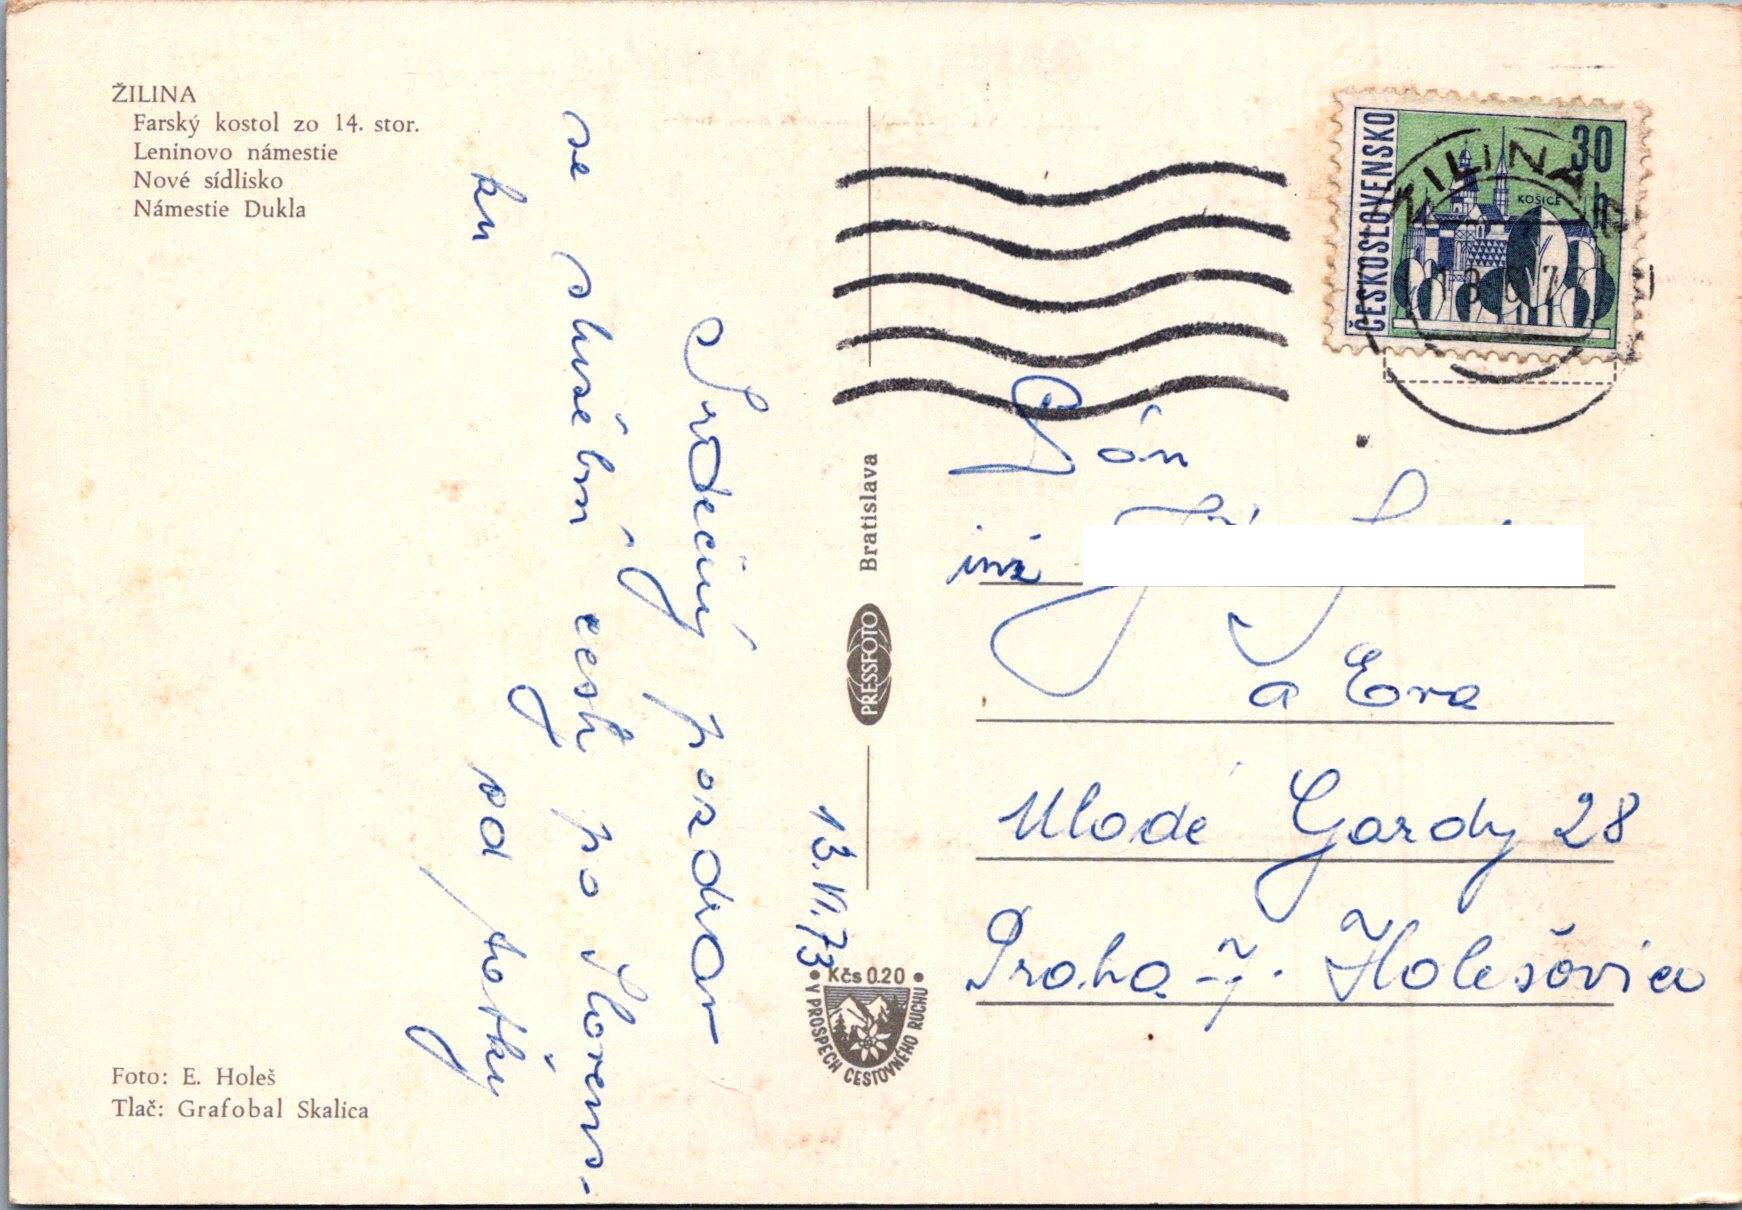 ŽILINA
Farský kostol zo 14. stor.
Leninovo námestie
Nové sídlisko
Námestie Dukla
13. VI. 73
Srdečný pozdrav
se služební cesty po Slovens-
ku od tetky
Foto: E. Holeš
Tlač: Grafobal Skalica
PRESSFOTO Bratislava
Kčs 0.20
V PROSPECH CESTOVNÉHO RUCHU
ČESKOSLOVENSKO
30 h
KOŠICE
ŽILINA
Pán
inž
a Eva
Mladé Gardy 28
Praha 7. Holešovice